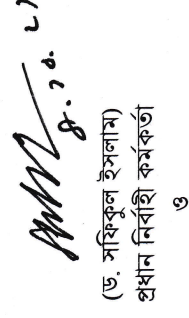 (ড. সফিকুল ইসলাম)
প্রধান নির্বাহী কর্মকর্তা
ও